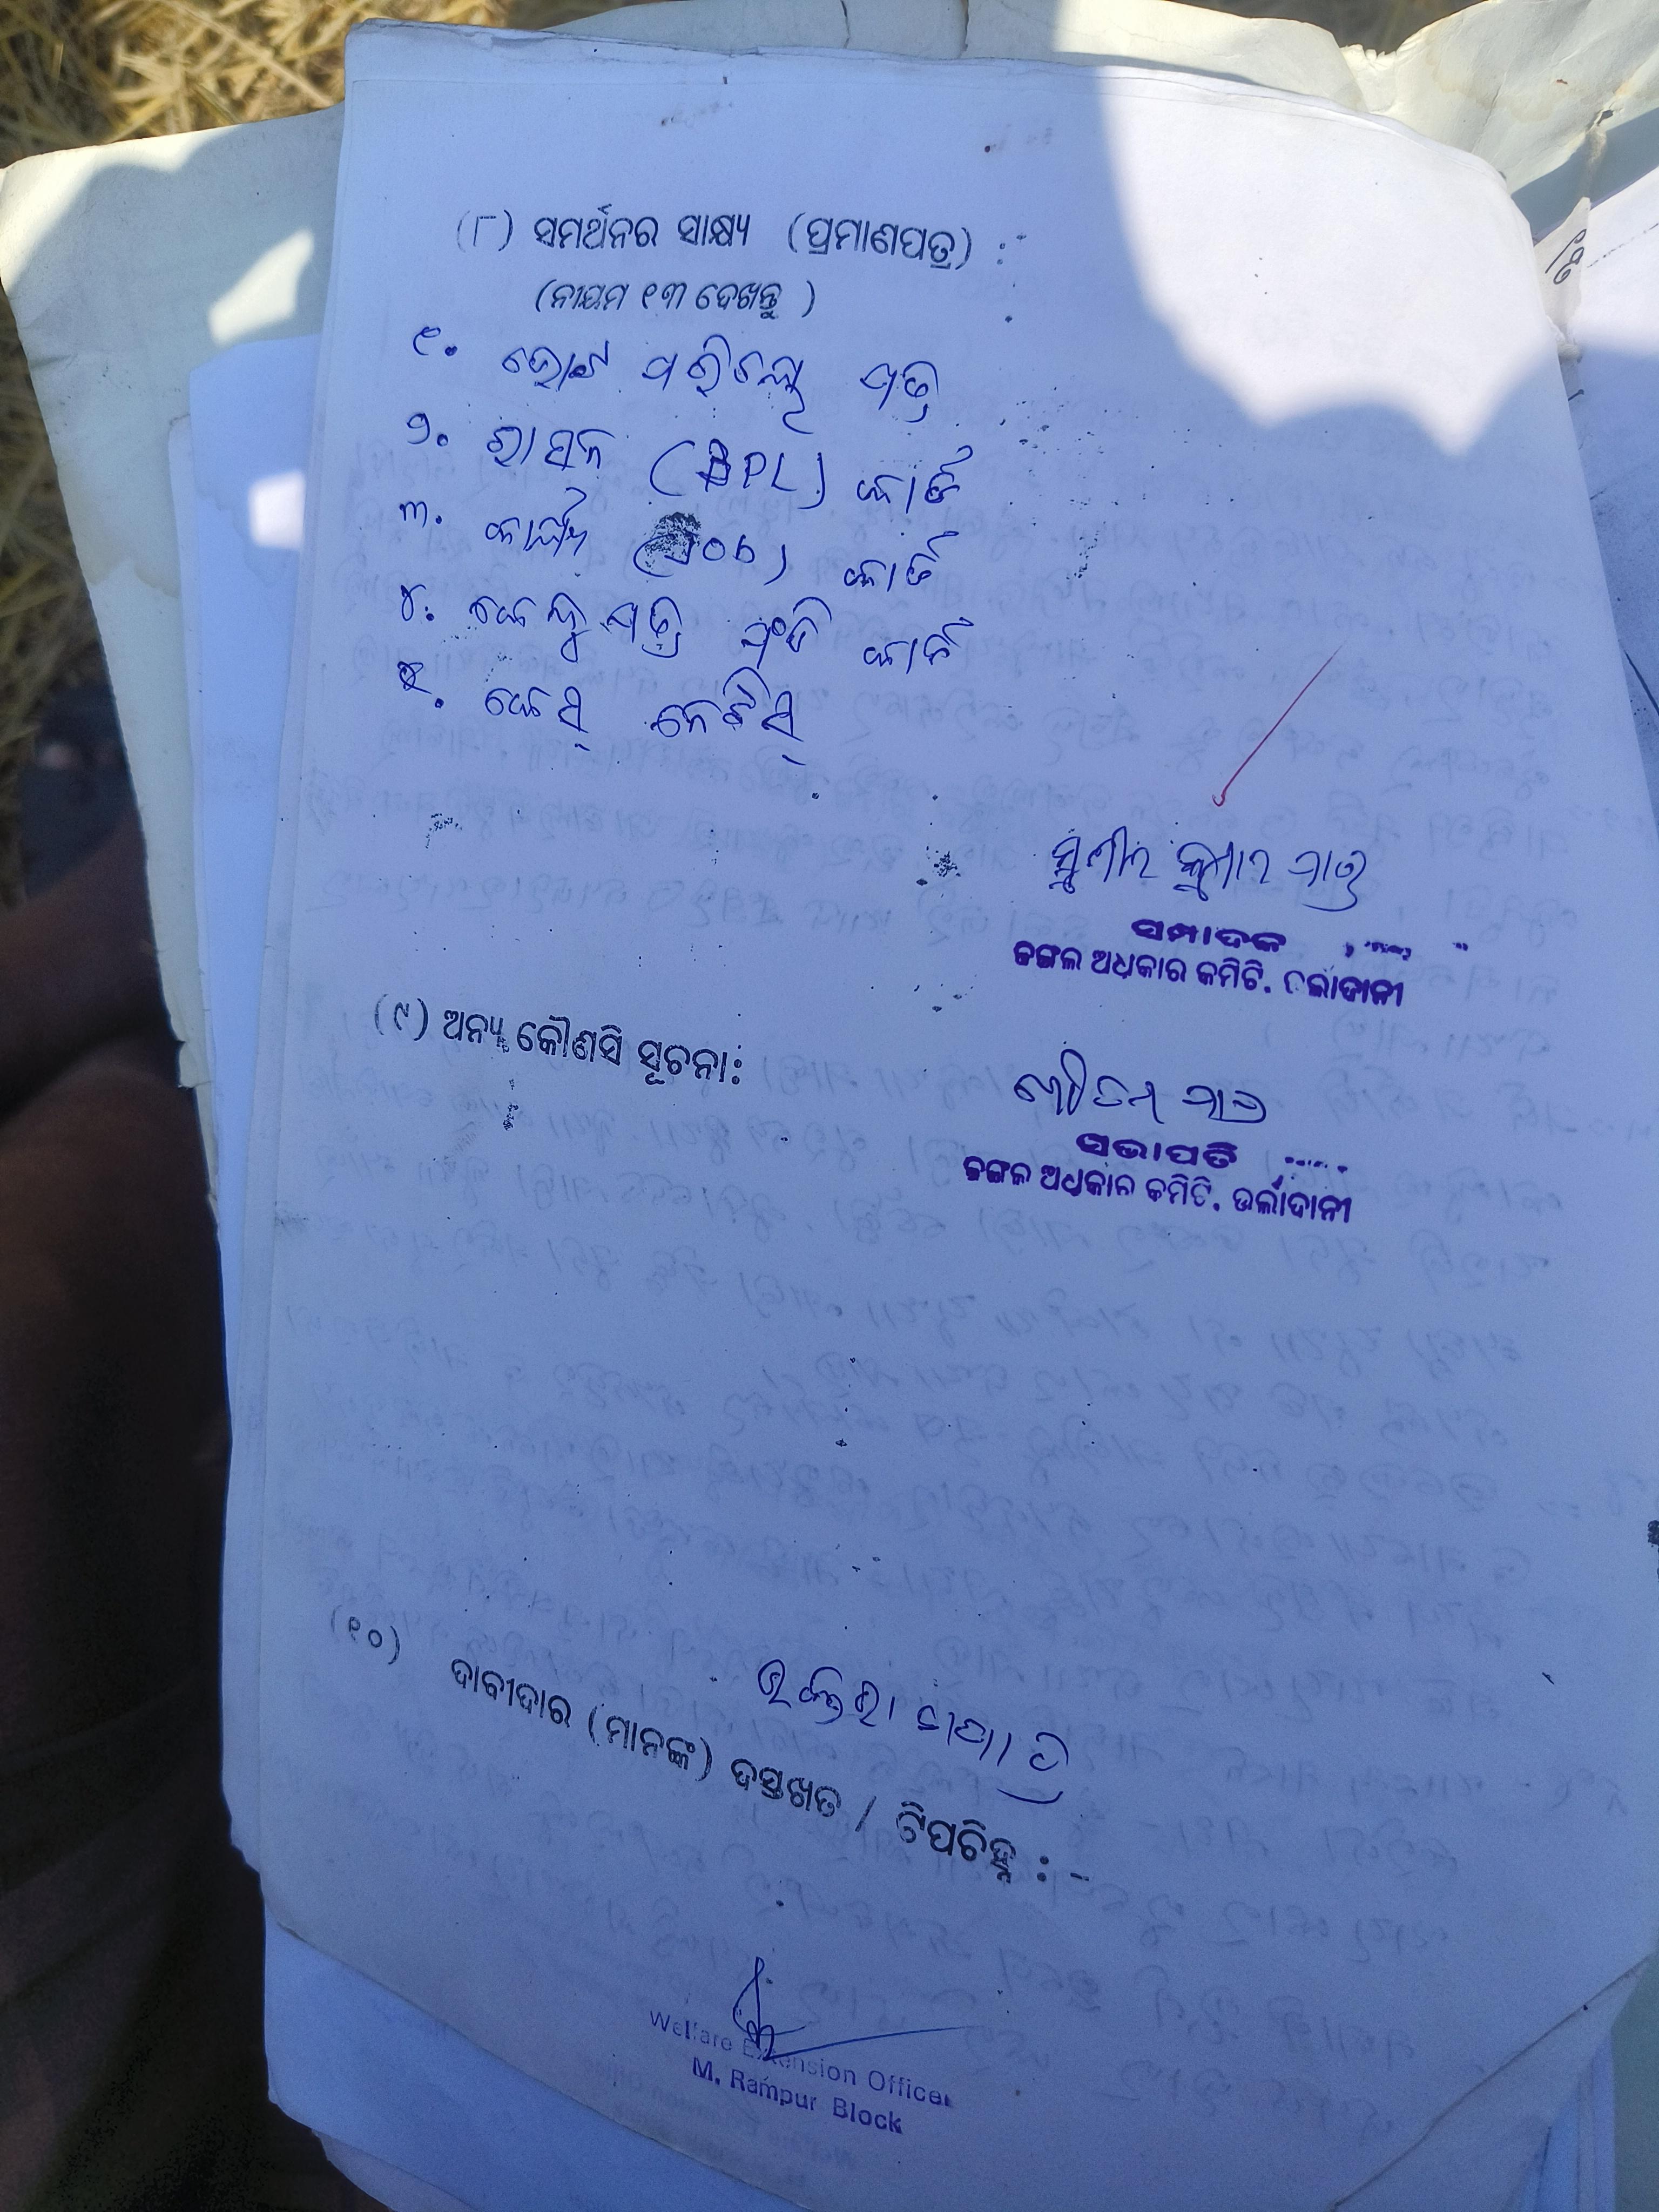 (୮) ସମର୍ଥନର ସାକ୍ଷ୍ୟ (ପ୍ରମାଣପତ୍ର) :-
(ନୀୟମ ୧୩ ଦେଖନ୍ତୁ )
୧. ଭୋଟ ପରିଚୟ ପତ୍ର
୨. ରାସନ (BPL) କାର୍ଡ
୩. କାର୍ଡ
୪. କେନ୍ଦୁ ପତ୍ର କାର୍ଡ
୫. କେସ୍ ନୋଟିସ୍
ସୁଶୀଲ କୁମାର
ସମ୍ପାଦକ
ଜଙ୍ଗଲ ଅଧିକାର କମିଟି, ଭର୍ଲାଦାନୀ
(୯) ଅନ୍ୟ କୌଣସି ସୂଚନା:
ସଭାପତି
ଜଙ୍ଗଲ ଅଧିକାର କମିଟି, ଭର୍ଲାଦାନୀ
(୧୦) ଦାବୀଦାର (ମାନଙ୍କ) ଦସ୍ତଖତ / ଟିପଚିହ୍ନ : -
Welfare Extension Officer
M. Rampur Block